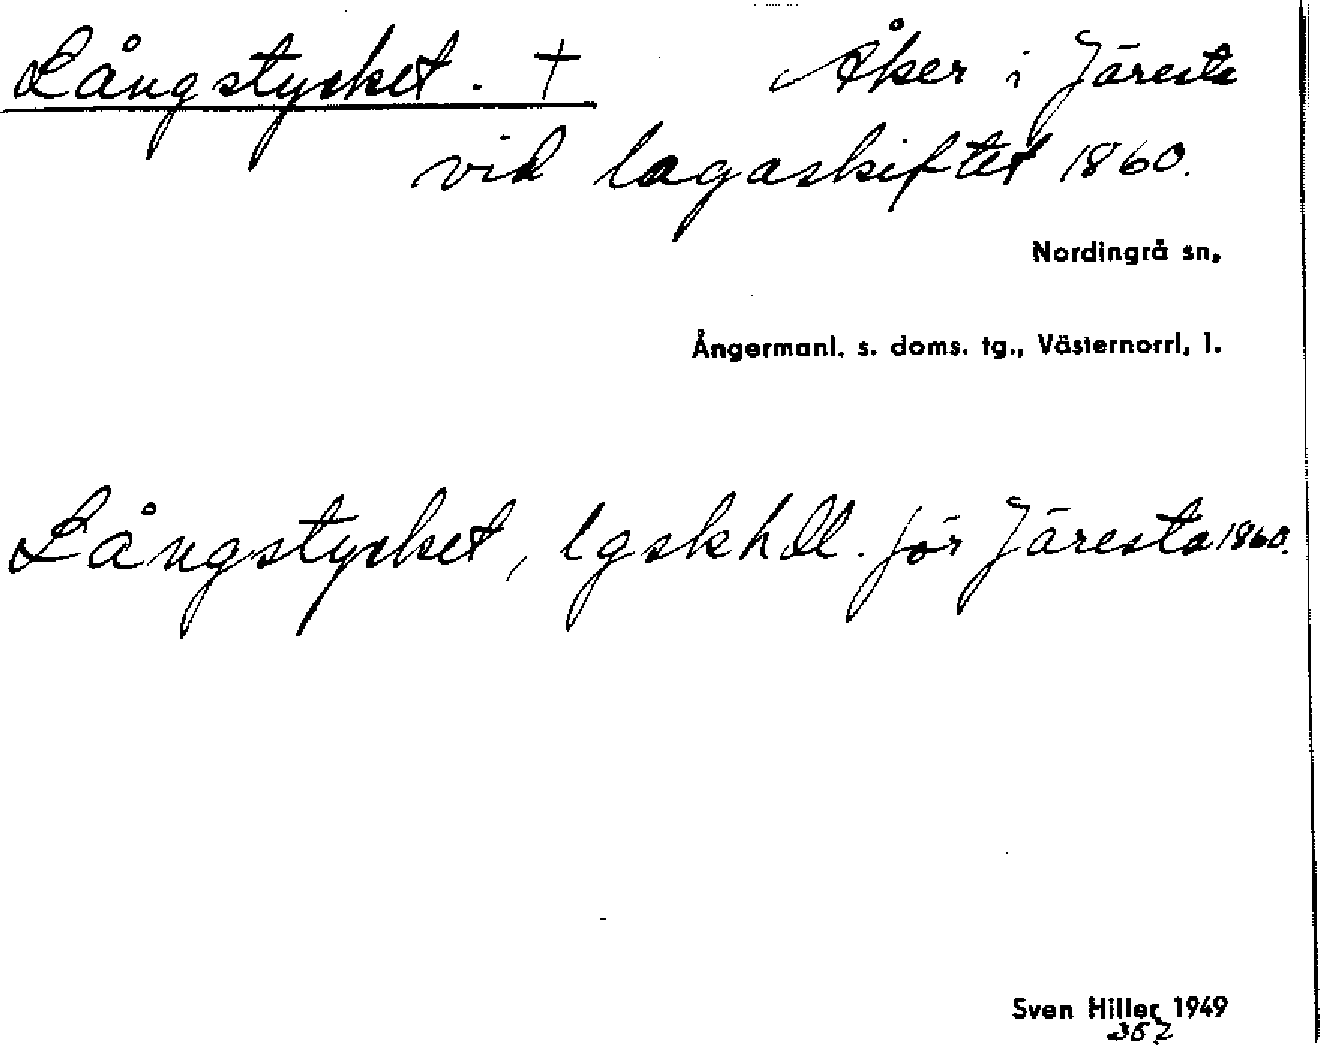 Långstycket. † Åker i Järesta
vid lagaskiftet 1860.
Nordingrå sn.
Ångermanl. s. doms. tg., Västernorrl. l.
Långstycket, lgskhdl. för Järesta 1860.
Sven Hiller 1949
352